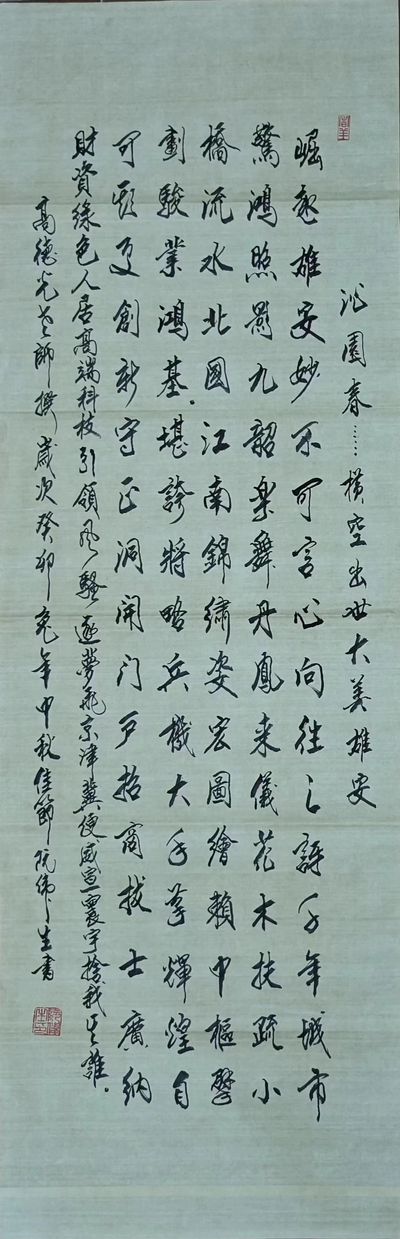 沁園春……橫空出世大美雄安
崛起雄安妙不可言心向往之訝千年城市
驚鴻照影九韶樂舞丹鳳來儀花木扶疏小
橋流水北國江南錦繡姿宏圖繪賴中樞擘
劃駿業鴻基堪誇將略兵機大手筆輝煌自
可期更創新守正洞開门户招商拔士廣納
財資綠色人居高端科技引領風騷逐夢飛京津冀使威宣寰宇捨我其誰
高德光老師撰歲次癸卯兔年中秋佳節阮偉生書